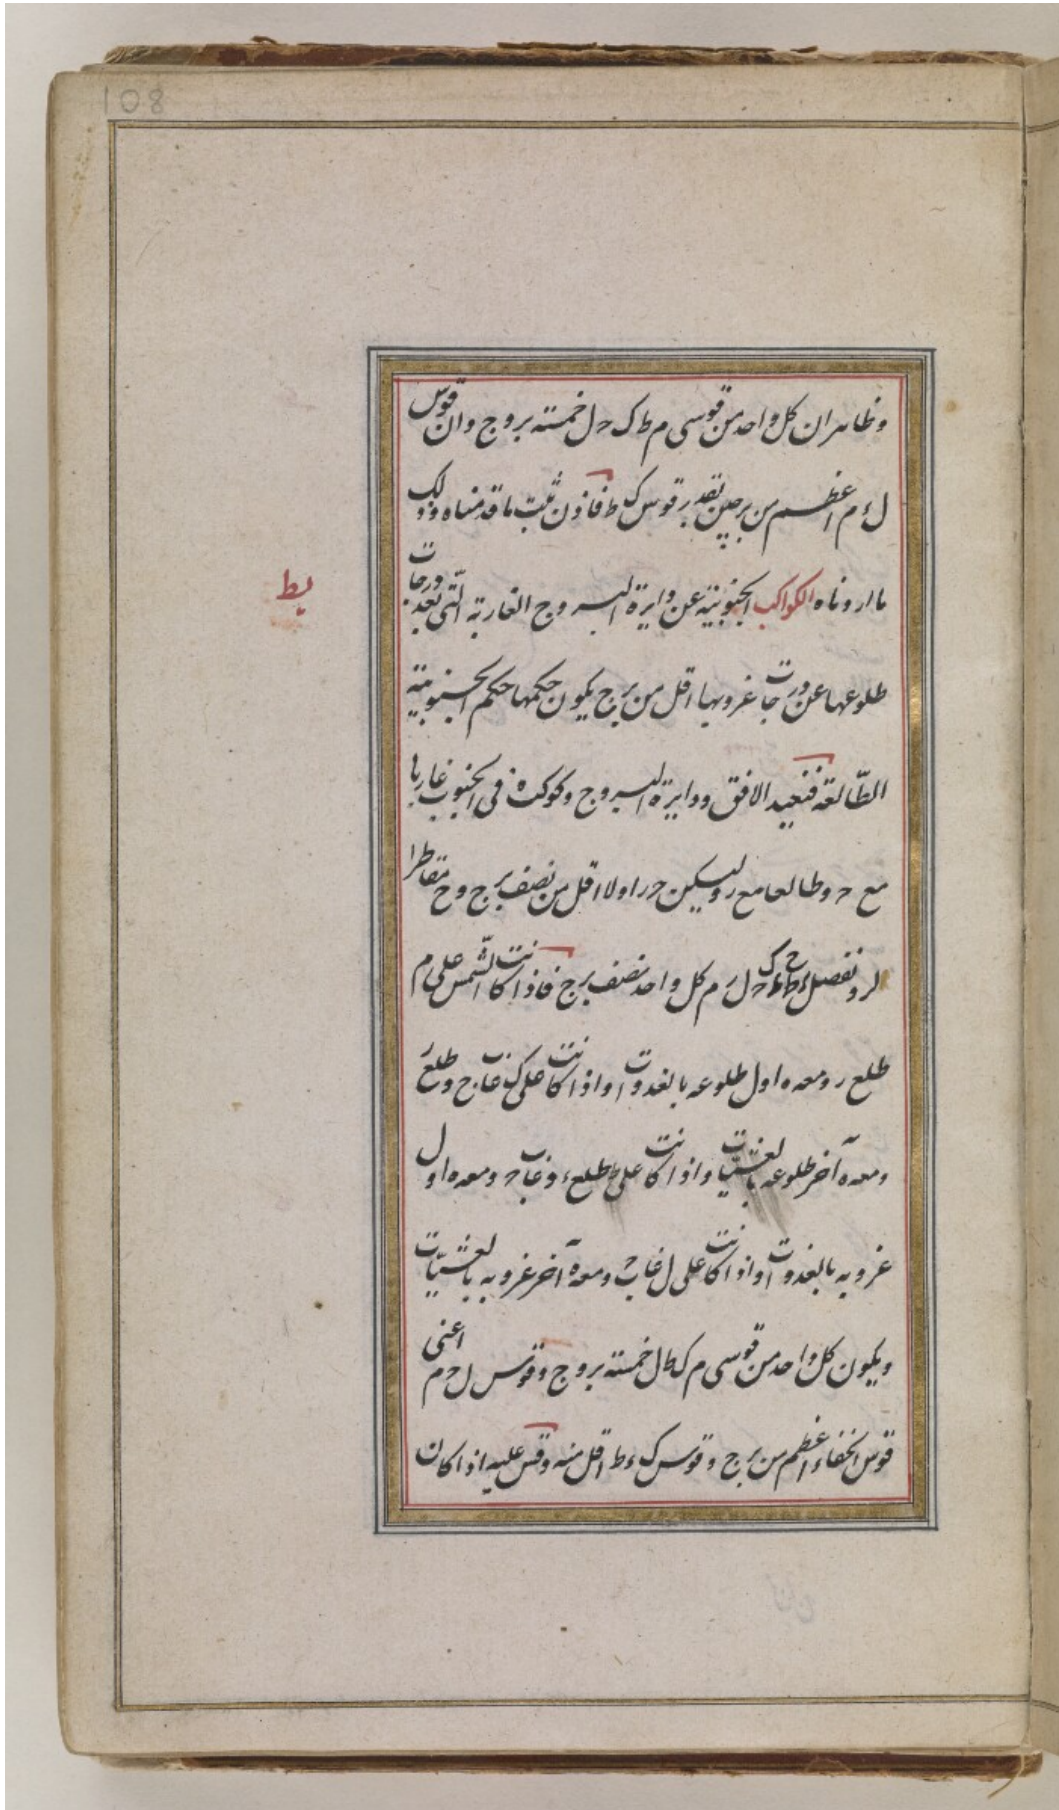 108
وظاهر ان كل واحد من قوسى م ط ك ح ل خمسة بروج وان قوس
ل ء م اعظم من برجين بقدر قوس ك ط فاذن ثبت ما قدمناه وذلك
ما اردناه الكواكب الجنوبية عن دايرة البروج الغاربة التى بعد درجات
يط
طلوعها عن درجات غروبها اقل من برج يكون حكمها حكم الجنوبية
الطالعة فنعيد الافق ودايرة البروج وكوكب ه فى الجنوب غاربا
مع ح وطالعا مع ر وليكن ح ر اولا اقل من نصف برج و ح مقاطرا
ل ر ونفصل ح ل ر م كل واحد نصف برج فاذا كانت الشمس على م
طلع ر ومعه ه اول طلوعه بالغدوات واذا كانت على ك غاب ج وطلع ر
ومعه ه آخر طلوعه بالعشيات واذا كانت على ط طلع ء وغاب ح ومعه ه اول
غروبه بالغدوات واذا كانت على ل غاب ح ومعه ه آخر غروبه بالعشيات
ويكون كل واحد من قوسى م ك ط ل خمسة بروج وقوس ل ح م اعنى
قوس الخفاء اعظم من برج وقوس ك ء ط اقل منه وقس عليه اذا كان